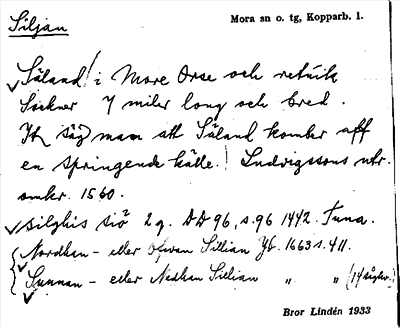 Siljan
Mora sn o. tg, Kopparb. l.
Siland! i More Orse och retuik
Socknar 7 miler long och bred.
It säg man att Siland komber aff
en springende källe! Ludvigssons
omkr. 1560.
silghis siö 2 g. DD 96, s. 96 1442. Tuna.
Nordhan- eller Ofwan Sillian Jb. 1663 s. 411.
Sunnan- eller Nedhan Sillian " " (14
Bror Lindén 1933